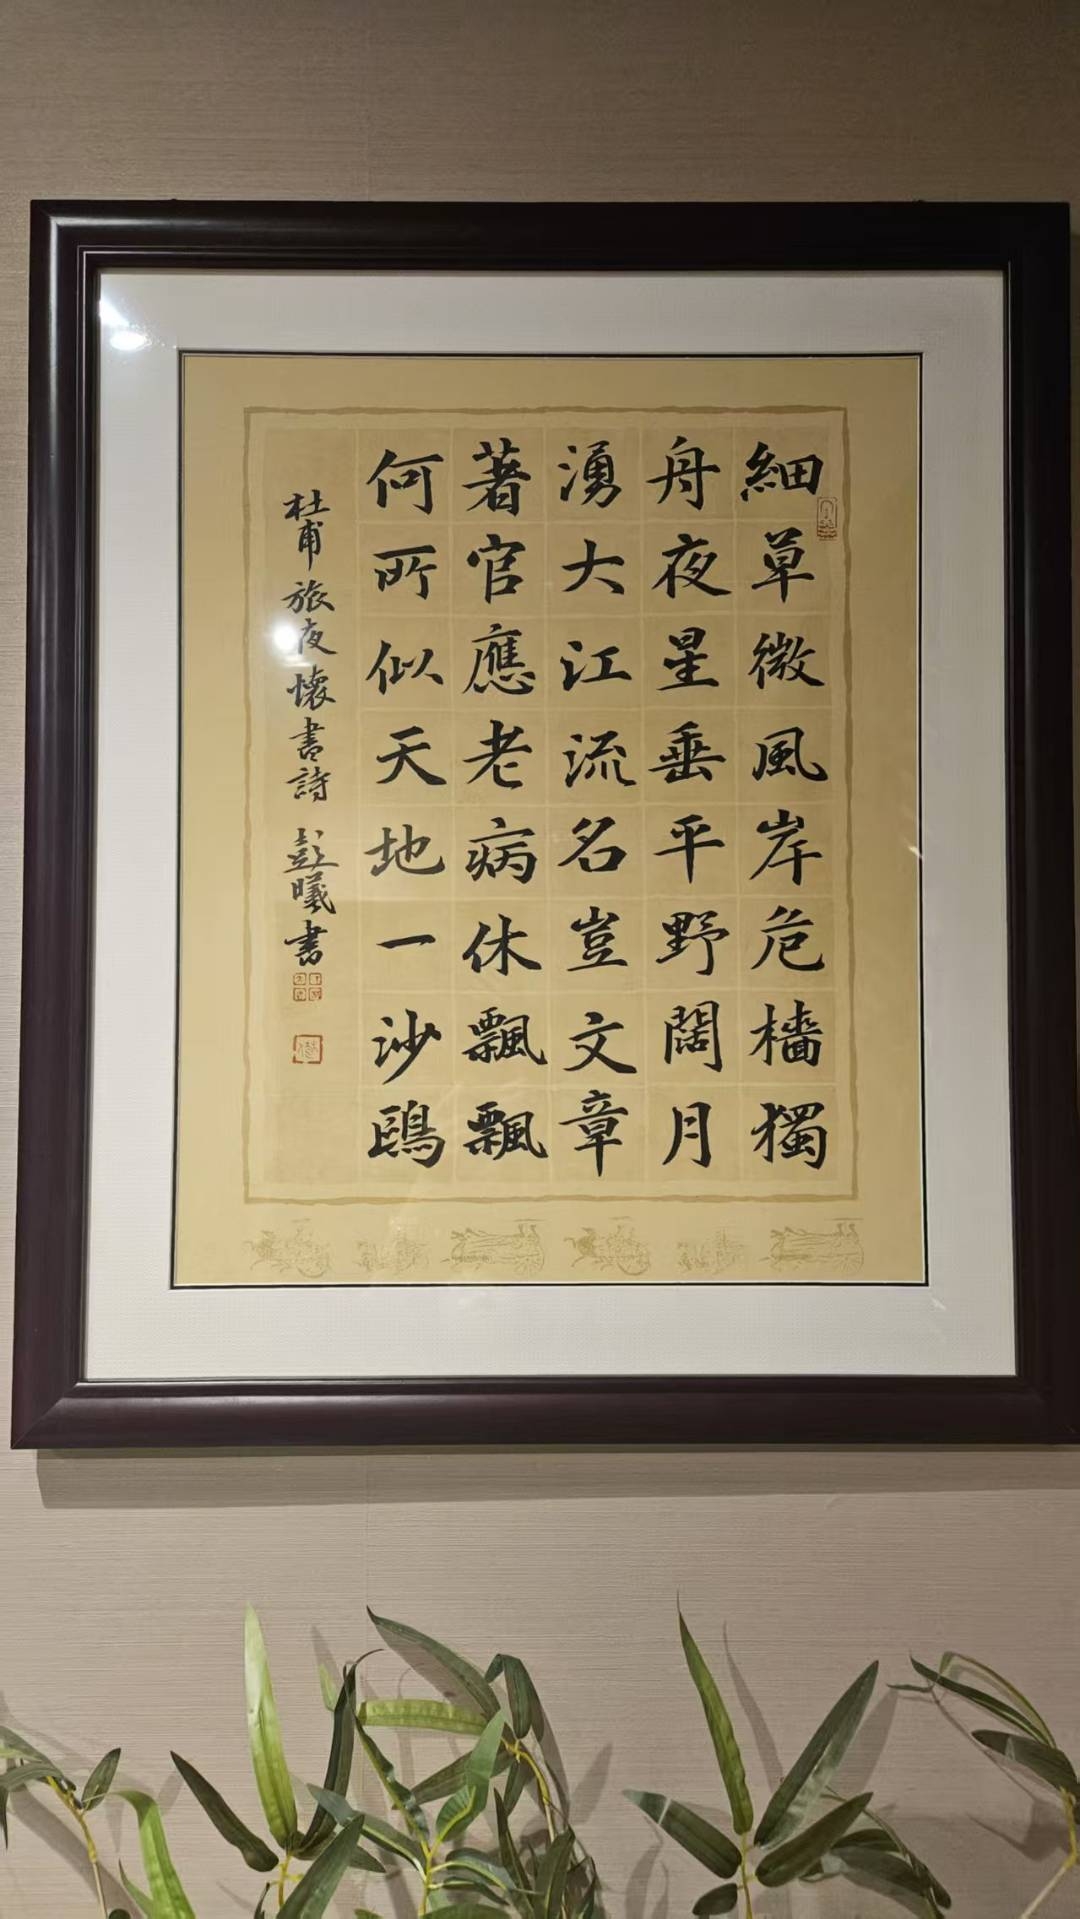 細草微風岸危檣獨
舟夜星垂平野闊月
湧大江流名豈文章
著官應老病休飄飄
何所似天地一沙鷗
杜甫旅夜懷書詩 彭曦書